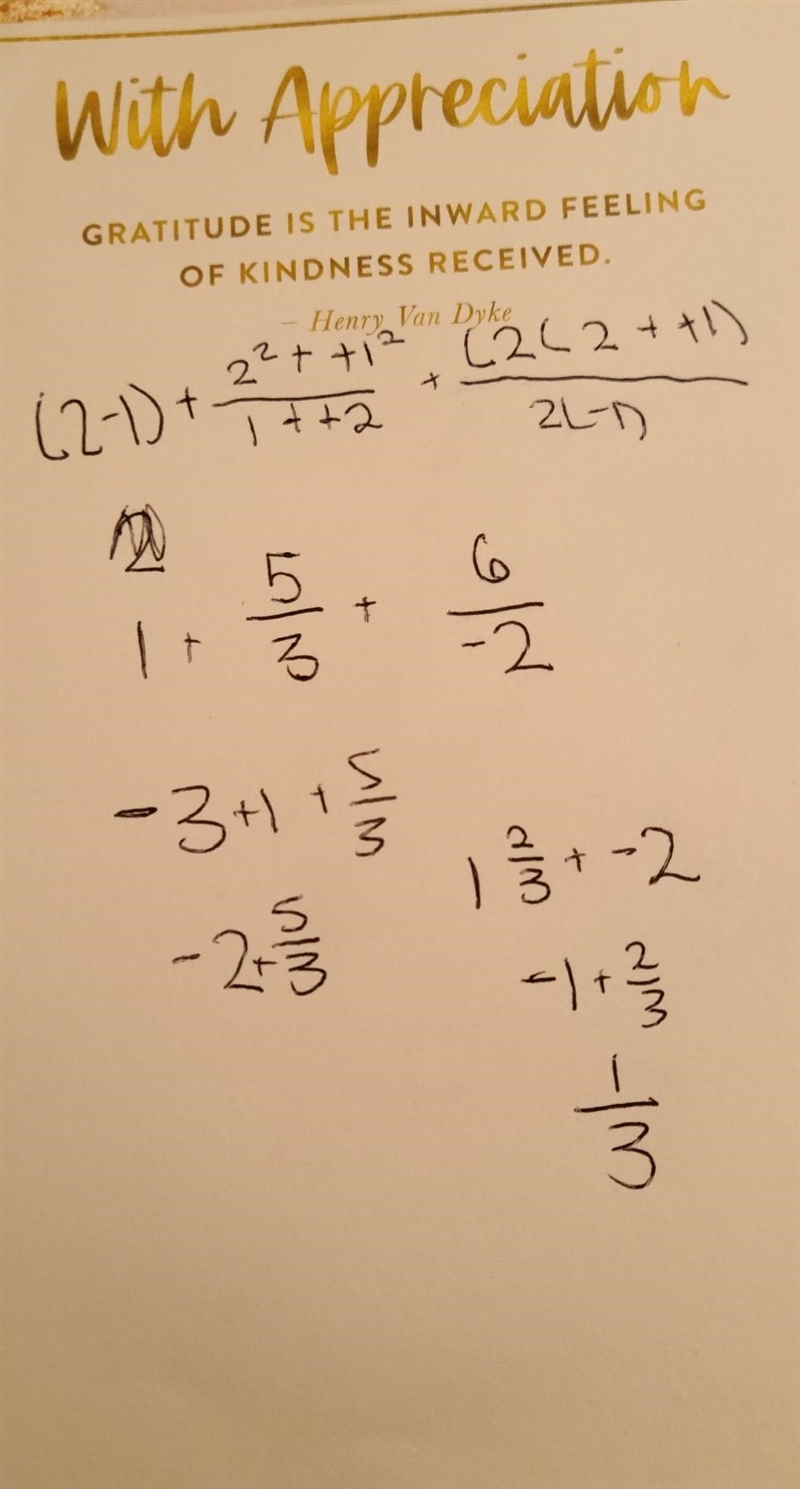 With Appreciation
GRATITUDE IS THE INWARD FEELING
OF KINDNESS RECEIVED.
– Henry Van Dyke
(2-1) + \frac{2^2 + +1^2}{1 + +2} + \frac{(2(2 + +1)}{2(-1)}
1 + \frac{5}{3} + \frac{6}{-2}
-3+1 + \frac{5}{3}
1 \frac{2}{3} + -2
-2+\frac{5}{3}
-1 + \frac{2}{3}
\frac{1}{3}